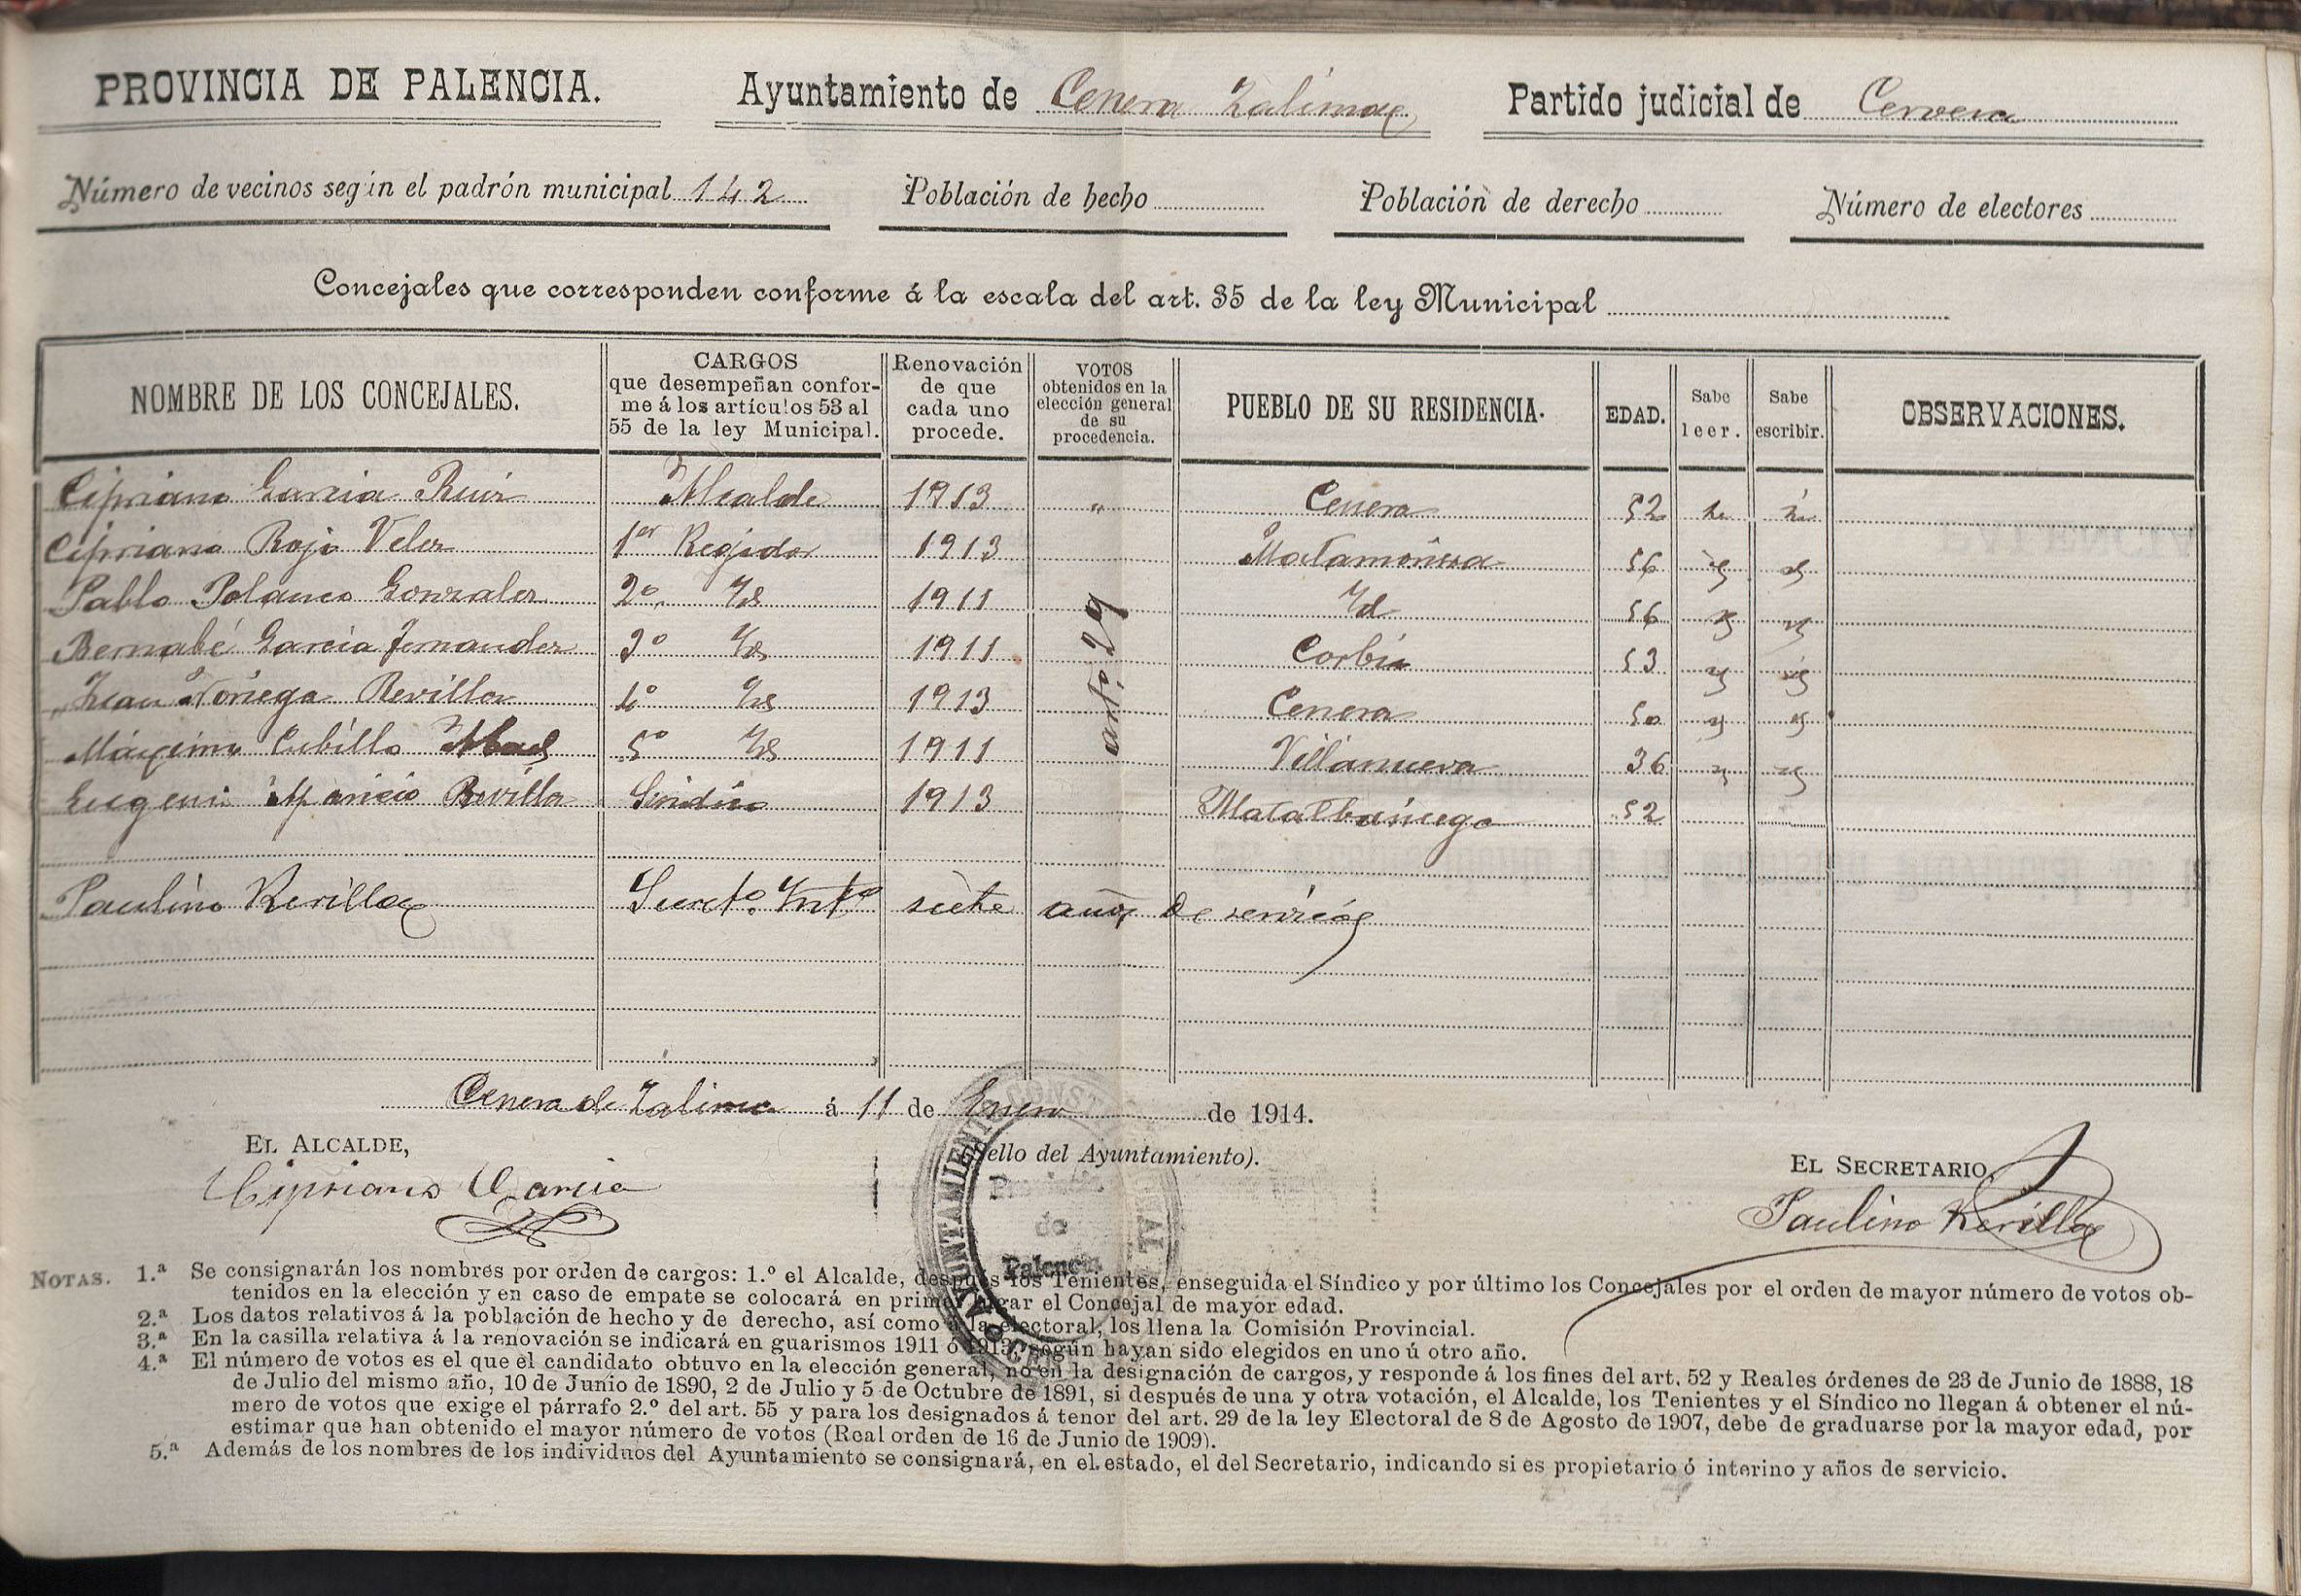 PROVINCIA DE PALENCIA. Ayuntamiento de Cenera Zalima Partido judicial de Cervera
Número de vecinos según el padrón municipal 142 Población de hecho Población de derecho Número de electores
Concejales que corresponden conforme á la escala del art. 35 de la ley Municipal
NOMBRE DE LOS CONCEJALES. CARGOS que desempeñan confor- me á los artículos 53 al 55 de la ley Municipal. Renovación de que cada uno procede. VOTOS obtenidos en la elección general de su procedencia. PUEBLO DE SU RESIDENCIA. EDAD. Sabe leer. Sabe escribir. OBSERVACIONES.
Cipriano Garcia Ruiz Alcalde 1913 " Cenera 52
Cipriano Rojo Velez 1er Regidor 1913 Matamorisca 56
Pablo Polanco Gonzalez 2º Id 1911 Id 56
Bernabé Garcia Fernandez 3º Id 1911 Corbio 53
Juan Noriega Revilla 4º Id 1913 Cenera 50
Máximo Cubillo Abad 5º Id 1911 Villanueva 36
Eugenio Aparicio Revilla Sindico 1913 Matalbaniega 52
artº. 29
Paulino Revilla Secretº. Intº siete años de servicios
Cenera de Zalima á 11 de Enero de 1914.
EL ALCALDE, (Sello del Ayuntamiento). EL SECRETARIO,
Cipriano Garcia Paulino Revilla
AYUNTAMIENTO CONST
de
Palencia
NOTAS. 1.ª Se consignarán los nombres por orden de cargos: 1.º el Alcalde, después los Tenientes, enseguida el Síndico y por último los Concejales por el orden de mayor número de votos ob-
tenidos en la elección y en caso de empate se colocará en primer lugar el Concejal de mayor edad.
2.ª Los datos relativos á la población de hecho y de derecho, así como á la electoral, los llena la Comisión Provincial.
3.ª En la casilla relativa á la renovación se indicará en guarismos 1911 ó 1913, según hayan sido elegidos en uno ú otro año.
4.ª El número de votos es el que el candidato obtuvo en la elección general, no en la designación de cargos, y responde á los fines del art. 52 y Reales órdenes de 23 de Junio de 1888, 18
de Julio del mismo año, 10 de Junio de 1890, 2 de Julio y 5 de Octubre de 1891, si después de una y otra votación, el Alcalde, los Tenientes y el Síndico no llegan á obtener el nú-
mero de votos que exige el párrafo 2.º del art. 55 y para los designados á tenor del art. 29 de la ley Electoral de 8 de Agosto de 1907, debe de graduarse por la mayor edad, por
estimar que han obtenido el mayor número de votos (Real orden de 16 de Junio de 1909).
5.ª Además de los nombres de los individuos del Ayuntamiento se consignará, en el estado, el del Secretario, indicando si es propietario ó interino y años de servicio.